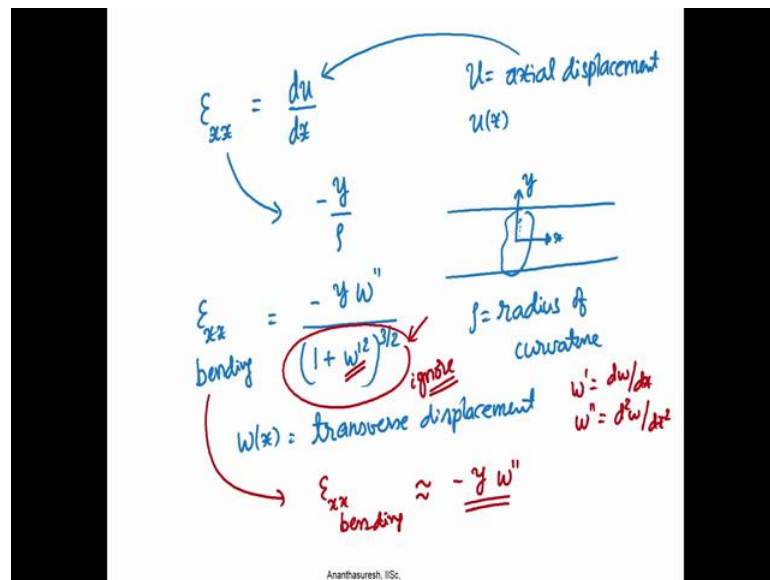 ε_xx = du/dx
u = axial displacement
u(x)
-y/ρ
y
x
ε_xx bending = -y w''/(1 + w'^2)^3/2
ρ = radius of curvature
ignore
w' = dw/dx
w'' = d²w/dx²
w(x) = transverse displacement
ε_xx bending ≈ -y w''
Ananthasuresh, IISc,